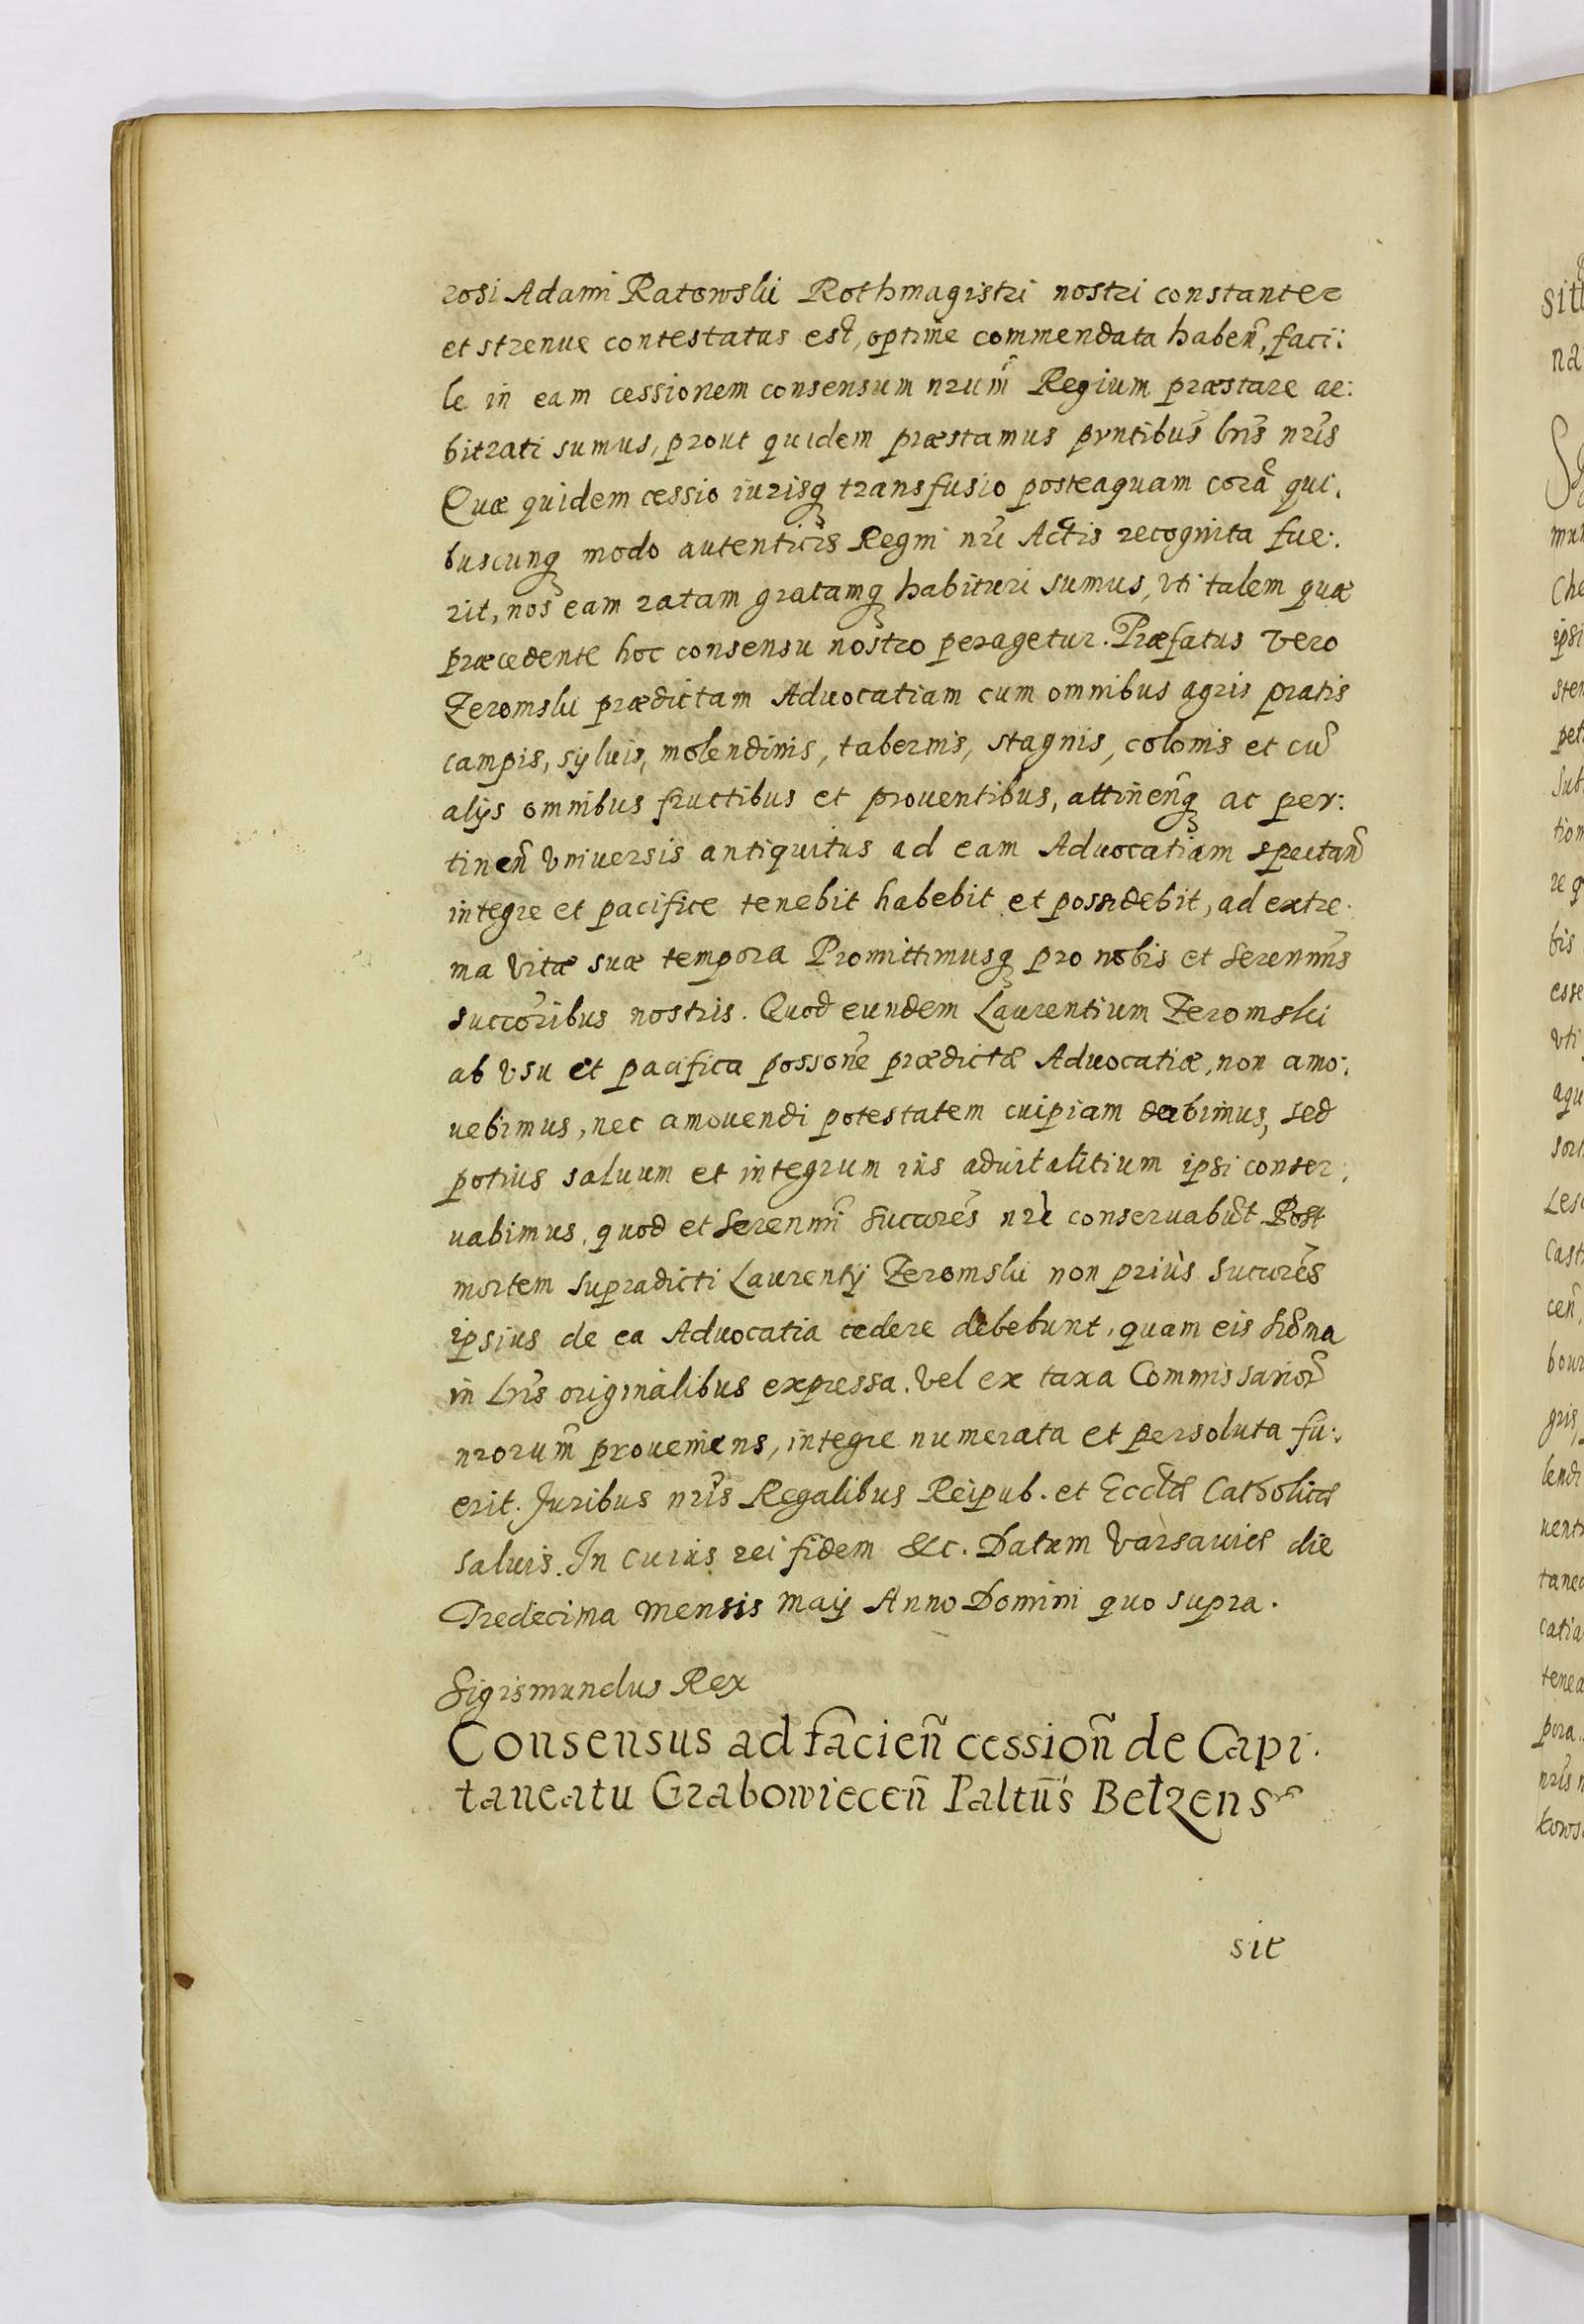 rosi Adami Ratowski Rothmagistri nostri constanter
et strenue contestatus est, optime commendata habeñ, faci:
le in eam cessionem consensum nrum̃ Regium præstare ar:
bitrati sumus, prout quidem præstamus pñtibus lrĩs nrĩs
Quæ quidem cessio iurisq transfusio posteaquam corã qui:
buscunq modo autenticis Regni nrĩ Actis recognita fue:
rit, nos eam ratam gratamq habituri sumus, vti talem quæ
præcedente hoc consensu nostro peragetur. Præfatus vero
Zeromski prædictam Advocatiam cum omnibus agris pratis
campis, syluis, molendinis, tabernis, stagnis, colonis et cũ
alijs omnibus fructibus et prouentibus, attineñq ac per:
tineñ vniuersis antiquitus ad eam Aduocatiam spectañ
integre et pacifice tenebit habebit et possidebit, ad extre:
ma vitæ suæ tempora Promittimusq pro nobis et Serenmĩs
succorĩbus nostris. Quod eundem Laurentium Zeromski
ab vsu et pacifica possonẽ prædictæ Aduocatiæ, non amo:
uebimus, nec amouendi potestatem cuipiam dabimus, sed
potius saluum et integrum ius aduitalitium ipsi conser:
uabimus, quod et Serenmĩ Succorẽs nrĩ conseruabũt. Post
mortem supradicti Laurentij Zeromski non priùs Succorẽs
ipsius de ea Aduocatia cedere debebunt, quam eis Sũma
in Lrĩs originalibus expressa. vel ex taxa Commissariorũ
nrorum̃ proueniens, integre numerata et persoluta fu:
erit. Juribus nrĩs Regalibus Reipub. et Eccliæ̃ Catholicæ
saluis. In cuius rei fidem &c. Datum Varsauiæ die
Tredecima mensis maij Anno Domini quo supra.
Sigismundus Rex
Consensus ad facieñ cessioñ de Capi:
taneatu Grabowieceñ Paltiñs Belzens
sit